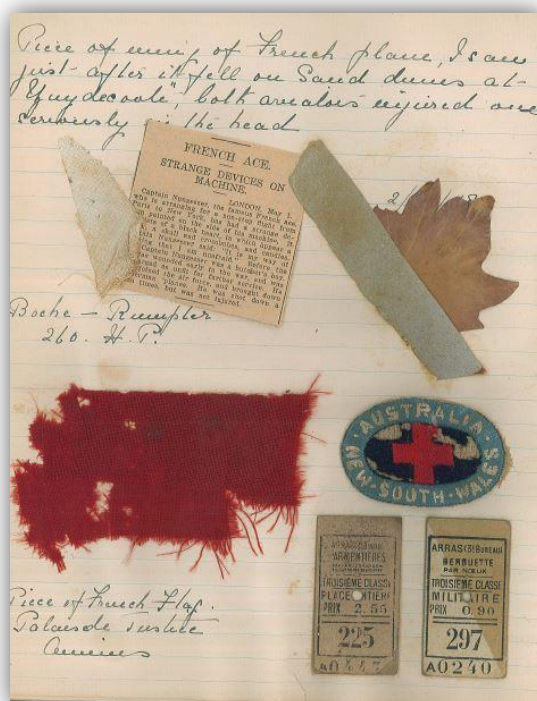 Piece of wing of French plane, I saw
just after it fell on Sand dunes at
both aviators injured one
seriously in the head
FRENCH ACE.
STRANGE DEVICES ON
MACHINE.
LONDON, May 1.
Captain Nungesser, the famous French ace,
who is arranging for a non-stop flight from
Paris to New York, has had a strange de-
vice painted on the side of his machine. It
consists of a black heart, in which appear a
skull and crossbones, and candles.
Captain Nungesser said: "It is my way of
saying that I am not afraid." Before the
Captain Nungesser was a butcher's boy.
He was wounded early in the war, and was
unfit for further service. He
joined the air force, and brought down
German planes. He was shot down
times, but was not injured.
Boche — Rumpler
260. H.P.
AUSTRALIA
NEW·SOUTH·WALES
ARMENTIÈRES
TROISIÈME CLASSE
PLACE ENTIÈRE
PRIX 2.55
225
ARRAS (3E BUREAU)
BERGUETTE
PAR NŒUX
TROISIÈME CLASSE
MILITAIRE
PRIX 0.90
297
A0240
Piece of French Flag.
Palais de Justice
Amiens